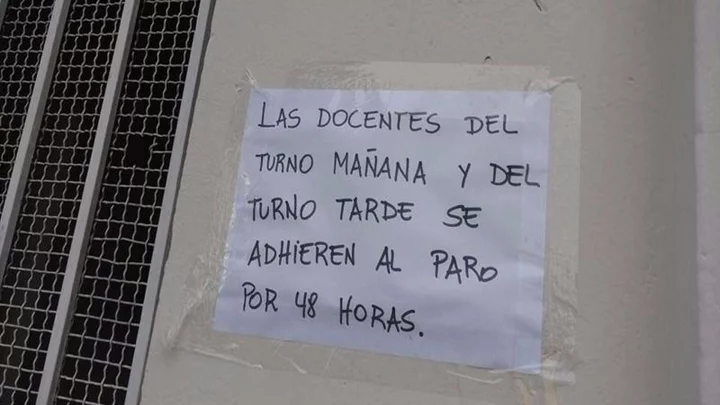 LAS DOCENTES DEL
TURNO MAÑANA Y DEL
TURNO TARDE SE
ADHIEREN AL PARO
POR 48 HORAS.